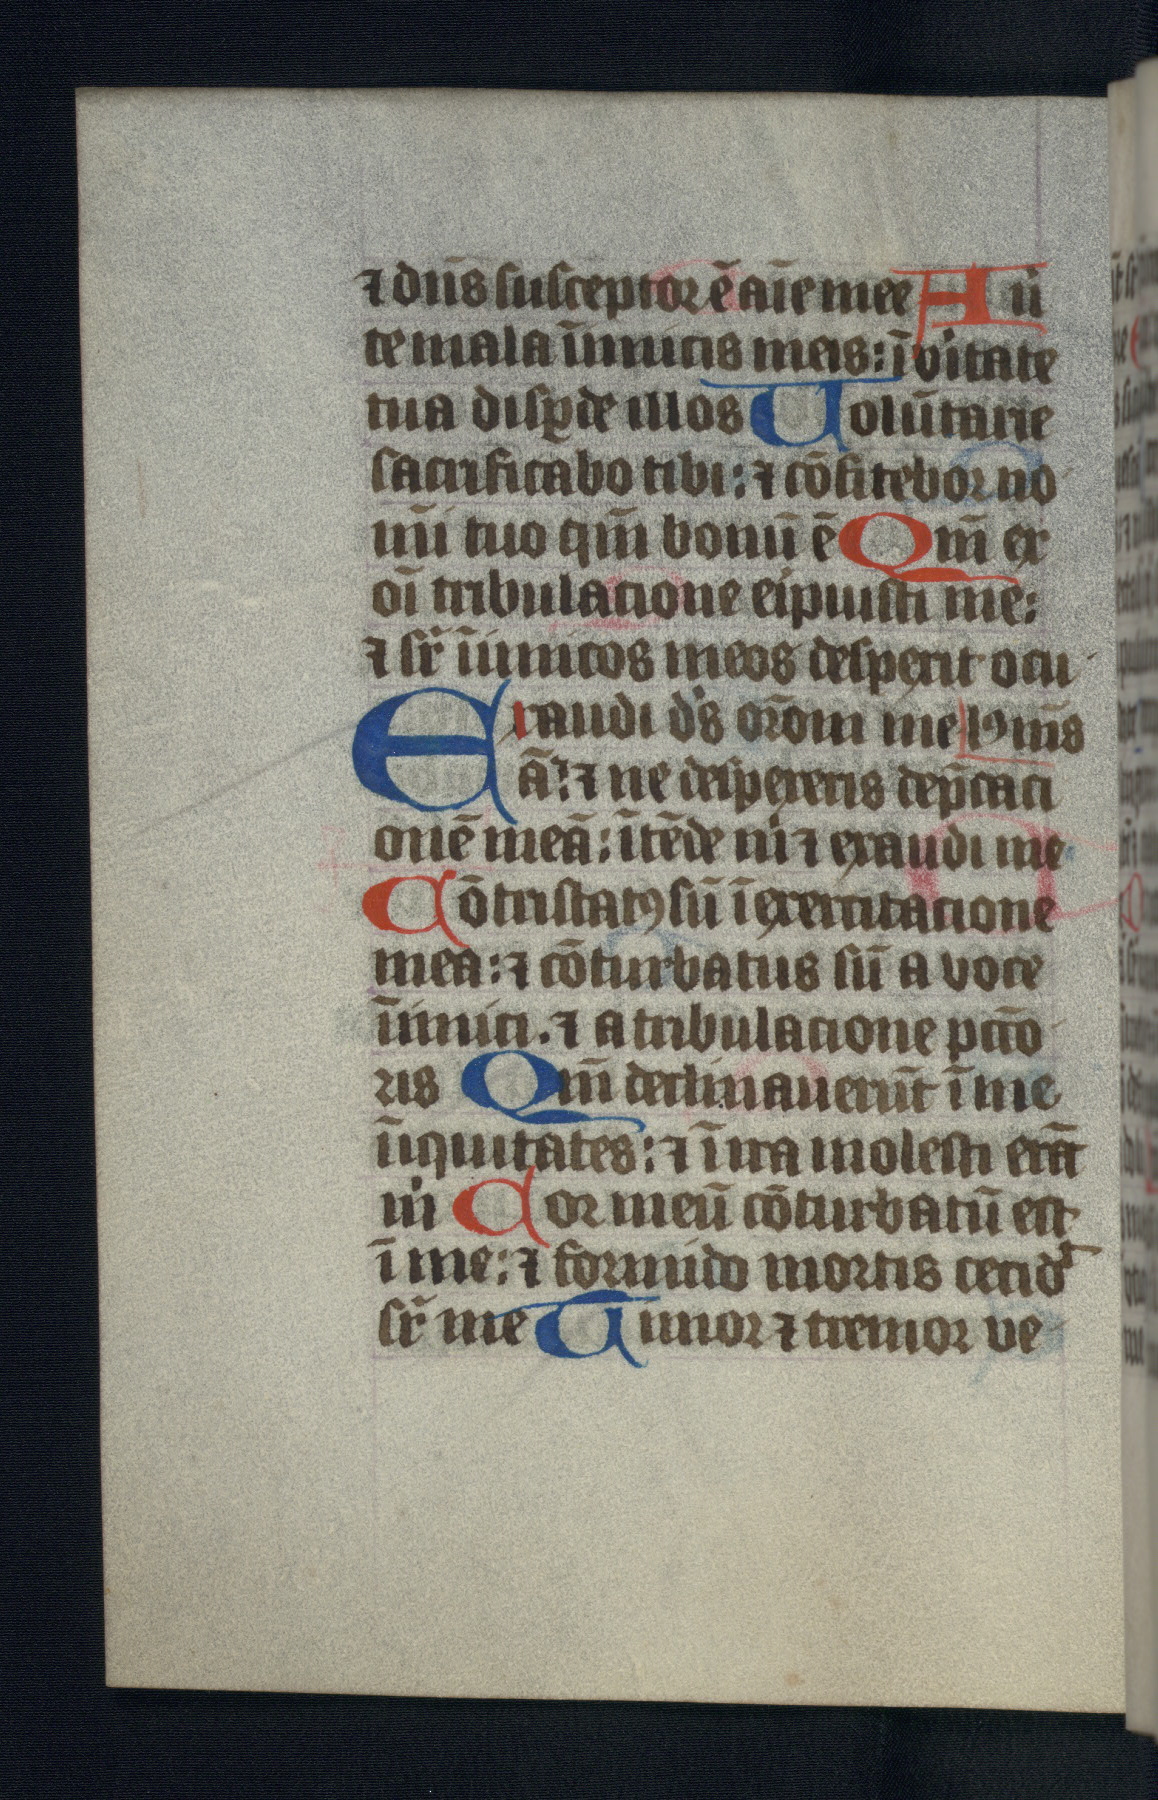 ⁊ dūs susceptor ē aīe mee Au
te mala īimicis meis: ī v̾itate
tua disꝑde illos Uolūtarie
sacrificabo tibi: ⁊ cōfitebor no
mī tuo qm̄ bonū ē Qm̄ ex
oī tribulacione eipuisti me:
⁊ sr̄ īimicos meos despexit ocu
Exaudi ds orōm me lꝰ mȝ
ā: ⁊ ne despexeris dep̄caci
onē meā: ītēde m̄ ⁊ exaudi me
Cōtristatꝯ sū ī exercitacione
mea: ⁊ cōturbatus sū a voce
īimici. ⁊ a tribulacione pctō
ris Qm̄ declinauerūt ī me
īiquitates: ⁊ ī ira molesti erāt
m̄ Cor meū cōturbatū est
ī me: ⁊ formido mortis cecidt
sr̄ me Timor ⁊ tremor ve